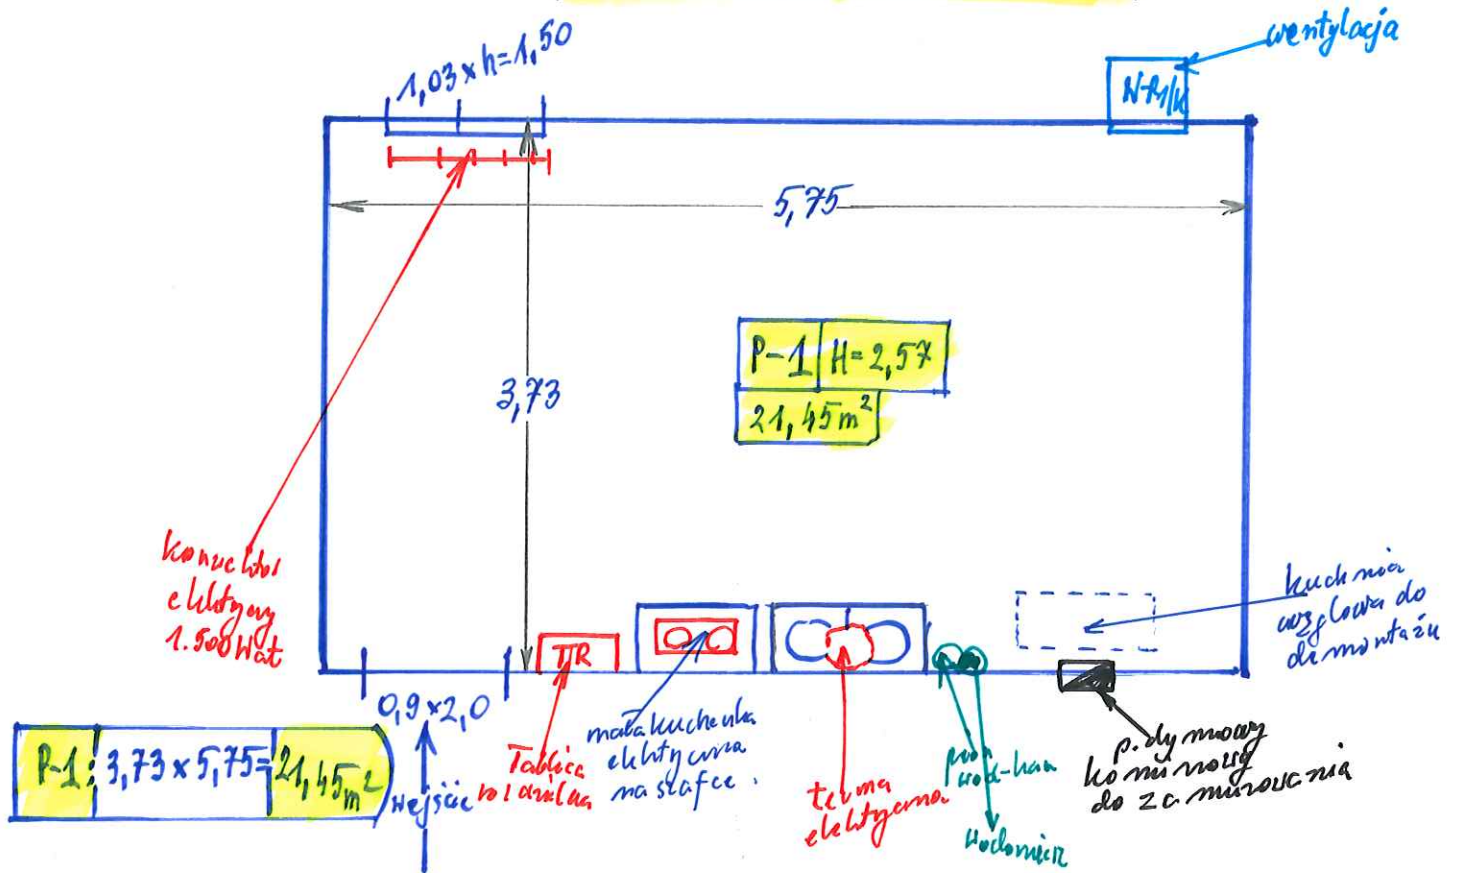 wentylacja
1,03 x h=1,50
5,75
3,73
P-1 H=2,57
21,45m²
konwektor
elektryczny
1.500 Wat
kuchnia
węglowa do
demontażu
TR
0,9 x 2,0
P-1: 3,73 x 5,75= 21,45m²
wejście
Tablica
rozdzielcza
mała kuchenka
elektryczna
na szafce.
terma
elektryczna
pion
wod-kan
wodomierz
p. dymowy
kominowy
do zamurowania